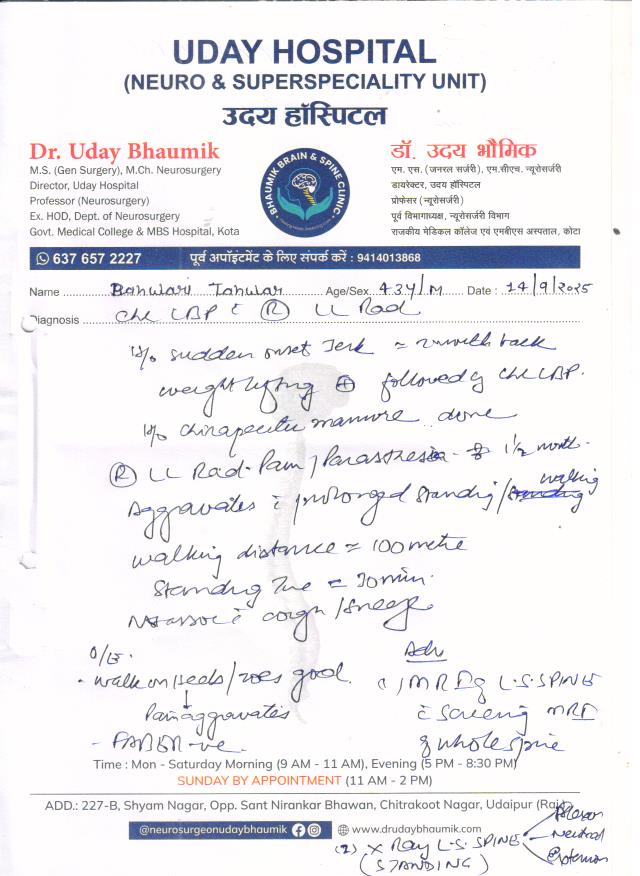 UDAY HOSPITAL
(NEURO & SUPERSPECIALITY UNIT)
उदय हॉस्पिटल
Dr. Uday Bhaumik
M.S. (Gen Surgery), M.Ch. Neurosurgery
Director, Uday Hospital
Professor (Neurosurgery)
Ex. HOD, Dept. of Neurosurgery
Govt. Medical College & MBS Hospital, Kota
BHAUMIK BRAIN & SPINE CLINIC
डॉ. उदय भौमिक
एम. एस. (जनरल सर्जरी), एम.सीएच. न्यूरोसर्जरी
डायरेक्टर, उदय हॉस्पिटल
प्रोफेसर (न्यूरोसर्जरी)
पूर्व विभागाध्यक्ष, न्यूरोसर्जरी विभाग
राजकीय मेडिकल कॉलेज एवं एमबीएस अस्पताल, कोटा
637 657 2227 पूर्व अपॉइंटमेंट के लिए संपर्क करें : 9414013868
Name Banwari Tanwar Age/Sex 43Y/M Date : 14/9/2025
Diagnosis Chr LBP c̄ (R) LL Rad
H/o sudden onset Jerk back
weight lifting (+) followed by Chr LBP.
H/o done
(R) LL Rad. Pain / 1½ month.
Aggravates c̄ prolonged standing / walking
walking distance = 100 metre
Standing =
c̄ cough / sneeze
O/E.
- walk on heels / toes good.
↓
Pain aggravates
- FABER -ve.
Adv
(1) MRI of L.S. SPINE
c̄ Screening MRI
of whole spine
Time : Mon - Saturday Morning (9 AM - 11 AM), Evening (5 PM - 8:30 PM)
SUNDAY BY APPOINTMENT (11 AM - 2 PM)
ADD.: 227-B, Shyam Nagar, Opp. Sant Nirankar Bhawan, Chitrakoot Nagar, Udaipur (Raj.)
@neurosurgeonudaybhaumik www.drudaybhaumik.com
(2) X Ray L.S. SPINE Flexion
Neutral
Extension
(STANDING)